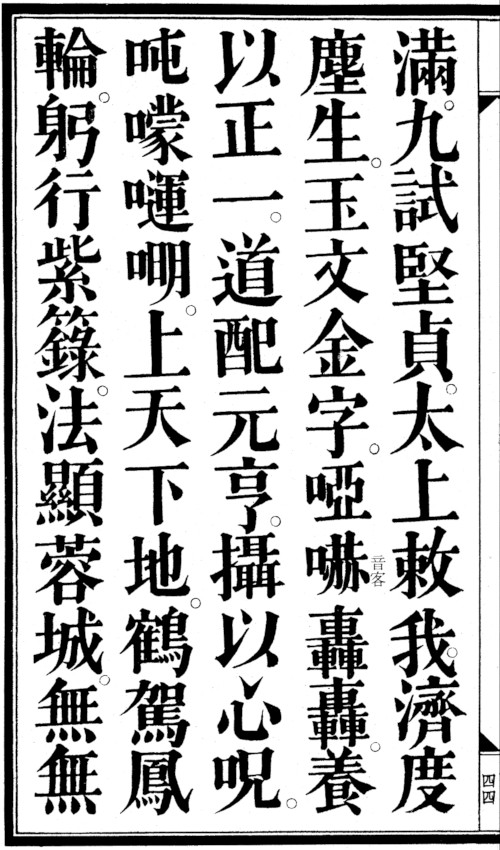 滿。九試堅貞。太上敕我。濟度
塵生。玉文金字。啞嚇音客轟轟。養
以正一。道配元亨。攝以心呪。
吨嚎嗹嘲。上天下地。鶴駕鳳
輪。躬行紫籙。法顯蓉城。無無
四四